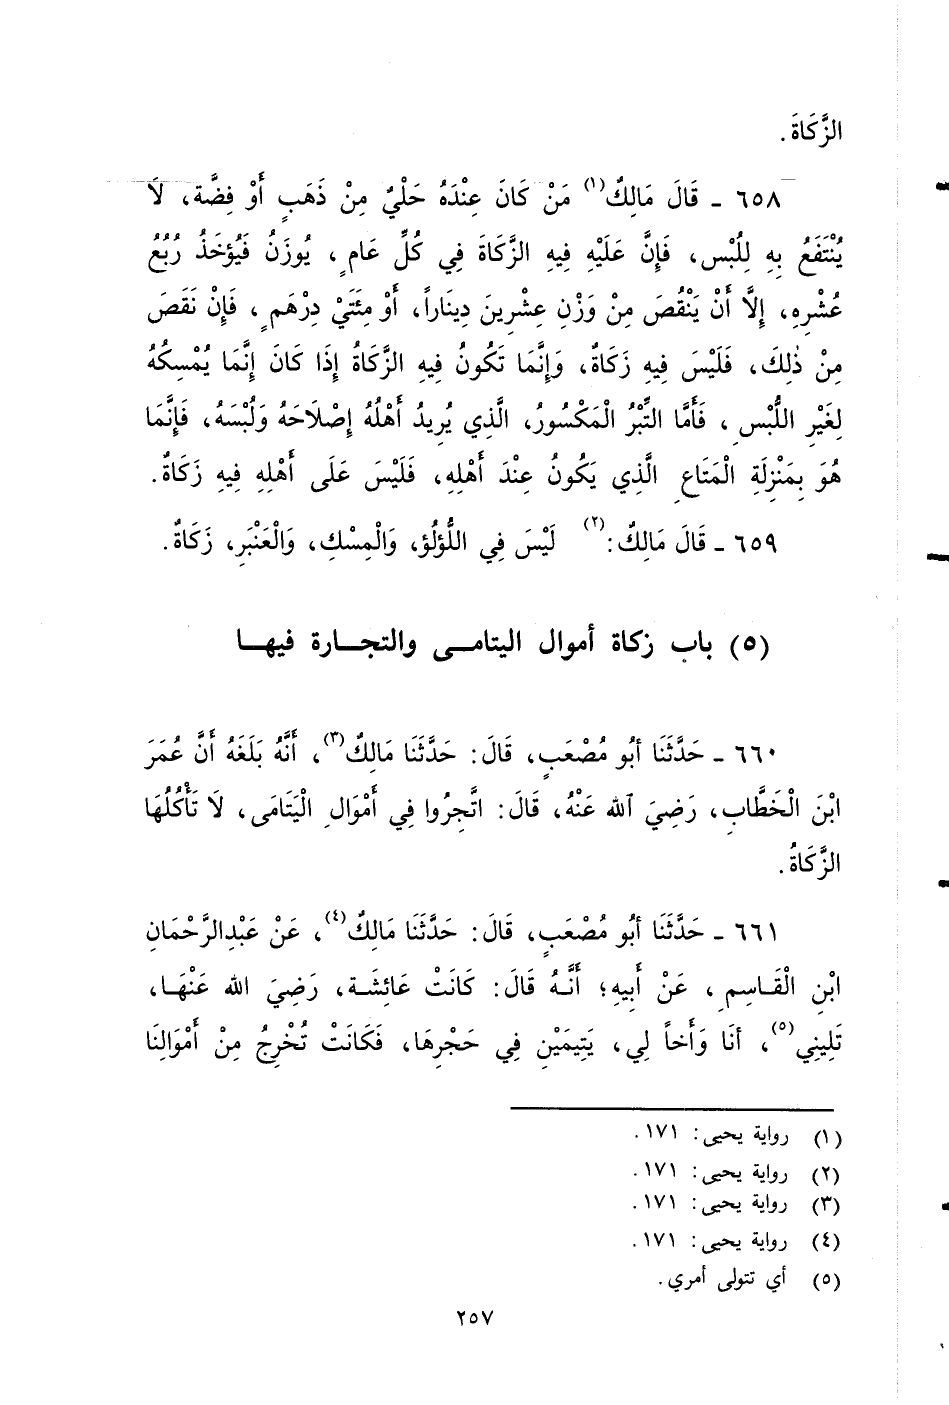 الزَّكَاةَ .
٦٥٨ - قَالَ مَالِكٌ(١) مَنْ كَانَ عِنْدَهُ حَلْيٌ مِنْ ذَهَبٍ أَوْ فِضَّة، لَا
يُنْتَفَعُ بِهِ لِلُبْس، فَإِنَّ عَلَيْهِ فِيهِ الزَّكَاةَ فِي كُلِّ عَامٍ، يُوزَنُ فَيُؤخَذُ رُبُعُ
عُشْرِهِ، إِلَّا أَنْ يَنْقُصَ مِنْ وَزْنِ عِشْرِينَ دِينَاراً، أَوْ مِئَتَيْ دِرْهَمٍ، فَإِنْ نَقَصَ
مِنْ ذٰلِكَ، فَلَيْسَ فِيهِ زَكَاةٌ، وَإِنَّمَا تَكُونُ فِيهِ الزَّكَاةُ إِذَا كَانَ إِنَّمَا يُمْسِكُهُ
لِغَيْرِ اللُّبْسِ، فَأَمَّا التِّبْرُ الْمَكْسُورُ، الَّذِي يُرِيدُ أَهْلُهُ إِصْلَاحَهُ وَلُبْسَهُ، فَإِنَّمَا
هُوَ بِمَنْزِلَةِ الْمَتَاعِ الَّذِي يَكُونُ عِنْدَ أَهْلِهِ، فَلَيْسَ عَلَى أَهْلِهِ فِيهِ زَكَاةٌ.
٦٥٩ - قَالَ مَالِكٌ:(٢) لَيْسَ فِي اللُّؤلُؤ، وَالْمِسْكِ، وَالْعَنْبَرِ، زَكَاةٌ.
(٥) باب زكاة أموال اليتامى والتجارة فيها
٦٦٠ - حَدَّثَنَا أبُو مُصْعَبٍ، قَالَ: حَدَّثَنَا مَالِكٌ(٣)، أَنَّهُ بَلَغَهُ أَنَّ عُمَرَ
ابْنَ الْخَطَّابِ، رَضِيَ الله عَنْهُ، قَالَ: اتَّجِرُوا فِي أَمْوَالِ الْيَتَامَى، لَا تَأْكُلُهَا
الزَّكَاةُ.
٦٦١ - حَدَّثَنَا أبُو مُصْعَبٍ، قَالَ: حَدَّثَنَا مَالِكٌ(٤)، عَنْ عَبْدِالرَّحْمَانِ
ابْنِ الْقَاسِمِ، عَنْ أَبِيهِ؛ أَنَّهُ قَالَ: كَانَتْ عَائِشَة، رَضِيَ الله عَنْهَا،
تَلِينِي(٥)، أنَا وَأَخاً لِي، يَتِيمَيْنِ فِي حَجْرِهَا، فَكَانَتْ تُخْرِجُ مِنْ أَمْوَالِنَا
(١) رواية يحيى: ١٧١.
(٢) رواية يحيى: ١٧١.
(٣) رواية يحيى: ١٧١.
(٤) رواية يحيى: ١٧١.
(٥) أي تتولى أمري.
٢٥٧